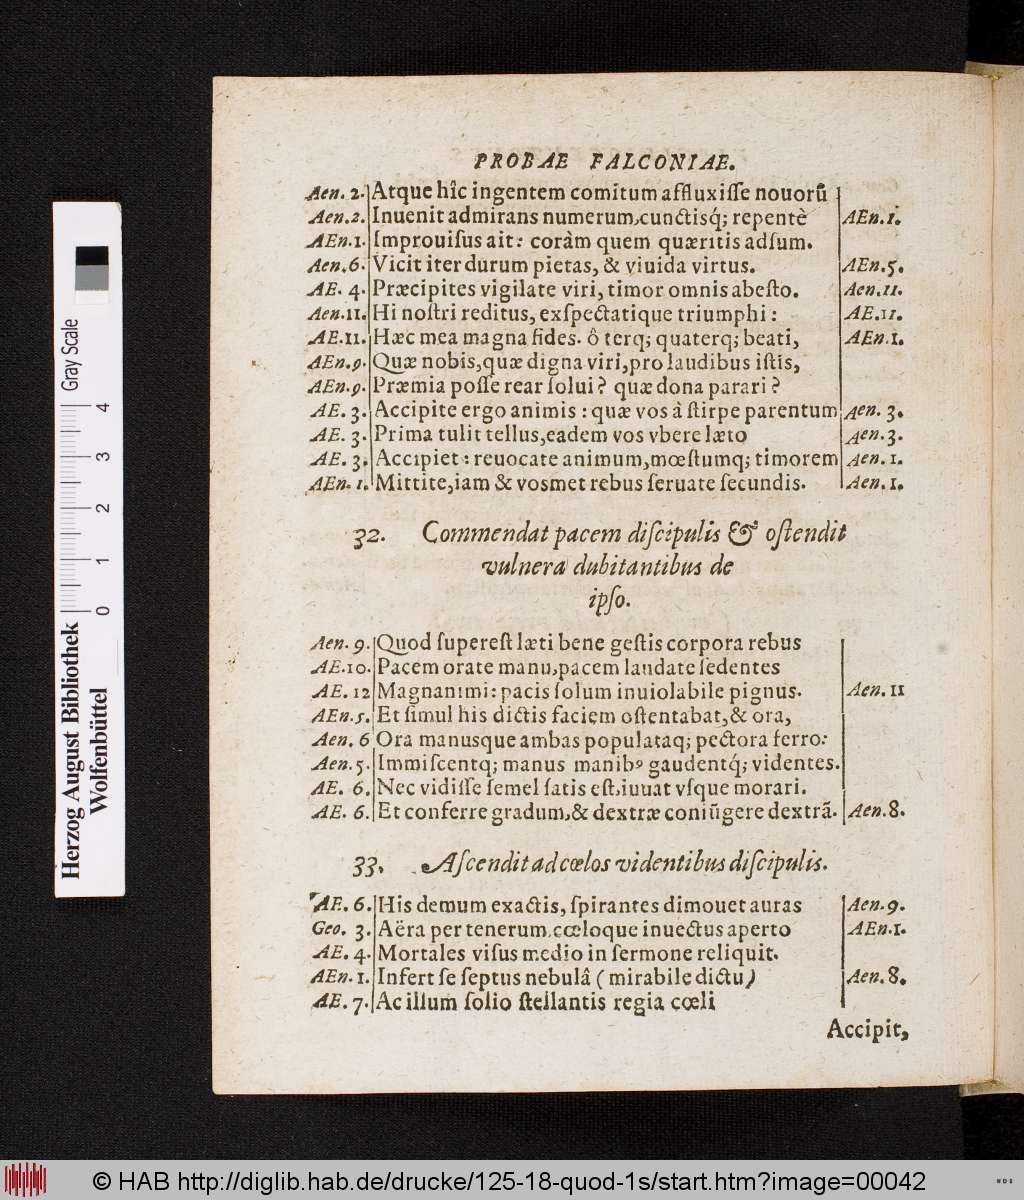 PROBAE FALCONIAE.
Aen. 2. Atque hîc ingentem comitum affluxiſſe nouorũ
Aen. 2. Inuenit admirans numerum, cunctisq́; repentè AEn. 1.
AEn. 1. Improuiſus ait: coràm quem quæritis adſum.
Aen. 6. Vicit iter durum pietas, & viuida virtus. AEn. 5.
AE. 4. Præcipites vigilate viri, timor omnis abeſto. Aen. 11.
Aen. 11. Hi noſtri reditus, exſpectatique triumphi: AE. 11.
AE. 11. Hæc mea magna fides. ô terq; quaterq; beati, AEn. 1.
AEn. 9. Quæ nobis, quæ digna viri, pro laudibus iſtis,
AEn. 9. Præmia poſſe rear ſolui? quæ dona parari?
AE. 3. Accipite ergo animis: quæ vos à ſtirpe parentum Aen. 3.
AE. 3. Prima tulit tellus, eadem vos vbere læto Aen. 3.
AE. 3. Accipiet: reuocate animum, mœſtumq; timorem Aen. 1.
AEn. 1. Mittite, iam & vosmet rebus ſeruate ſecundis. Aen. 1.
32. Commendat pacem diſcipulis & oſtendit
vulnera dubitantibus de
ipſo.
Aen. 9. Quod ſupereſt læti bene geſtis corpora rebus
AE. 10. Pacem orate manu, pacem laudate ſedentes
AE. 12 Magnanimi: pacis ſolum inuiolabile pignus. Aen. 11
AEn. 5. Et ſimul his dictis faciem oſtentabat, & ora,
Aen. 6 Ora manusque ambas populataq; pectora ferro:
Aen. 5. Immiſcentq; manus manibꝰ gaudentq́; videntes.
AE. 6. Nec vidiſſe ſemel ſatis eſt, iuuat vſque morari.
AE. 6. Et conferre gradum, & dextræ coniũgere dextrã. Aen. 8.
33. Aſcendit ad cœlos videntibus diſcipulis.
AE. 6. His demum exactis, ſpirantes dimouet auras Aen. 9.
Geo. 3. Aëra per tenerum, cœloque inuectus aperto AEn. 1.
AE. 4. Mortales viſus medio in ſermone reliquit.
AEn. 1. Infert ſe ſeptus nebulâ (mirabile dictu) Aen. 8.
AE. 7. Ac illum ſolio ſtellantis regia cœli
Accipit,
Herzog August Bibliothek
Wolfenbüttel
0 1 2 3 4
Gray Scale
© HAB http://diglib.hab.de/drucke/125-18-quod-1s/start.htm?image=00042